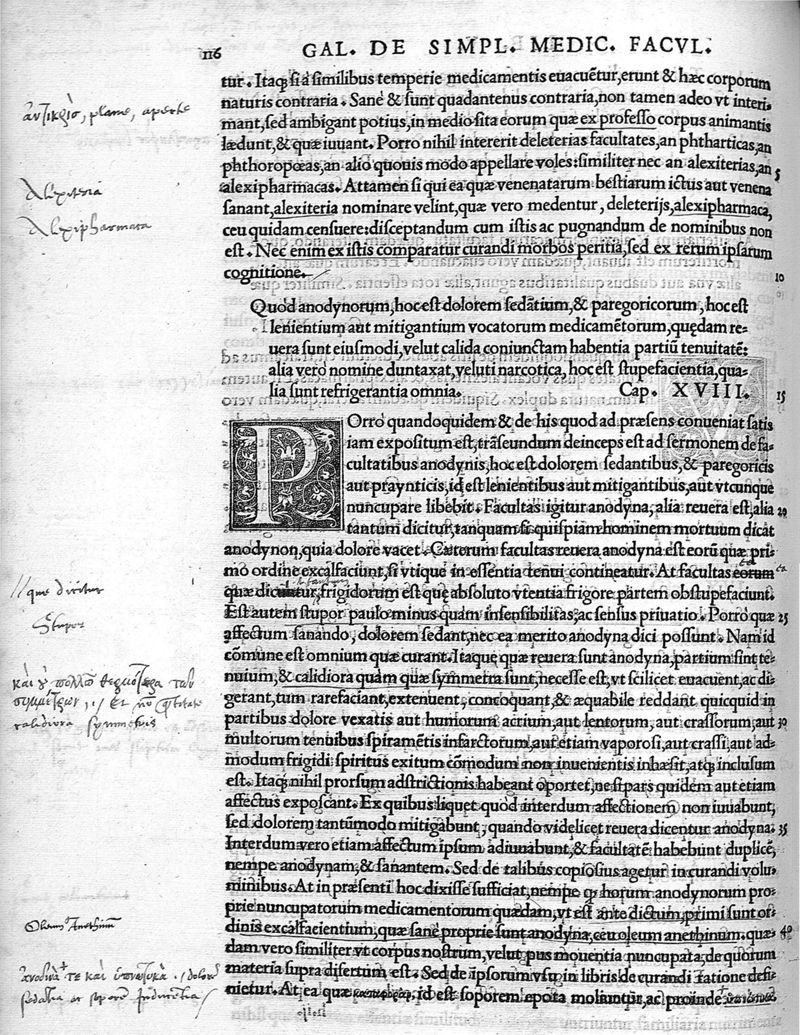 116 GAL. DE SIMPL. MEDIC. FACVL.
tur. Itaq; si à similibus temperie medicamentis euacuẽtur, erunt & hæc corporum
naturis contraria. Sanè & sunt quadantenus contraria, non tamen adeo vt interi-
mant, sed ambigant potius, in medio sita eorum quæ ex professo corpus animantis
lædunt, & quæ iuuant. Porro nihil intererit deleterias facultates, an phtharticas, an
phthoropœas, an alio quouis modo appellare voles: similiter nec an alexiterias, an 5
alexipharmacas. Attamen si qui ea quæ venenatarum bestiarum ictus aut venena
sanant, alexiteria nominare velint, quæ vero medentur, deleterijs, alexipharmaca,
ceu quidam censuere: disceptandum cum istis ac pugnandum de nominibus non
est. Nec enim ex istis comparatur curandi morbos peritia, sed ex rerum ipsarum
cognitione. 10
Quòd anodynorum, hoc est dolorem sedãtium, & paregoricorum, hoc est
lenientium aut mitigantium vocatorum medicamẽtorum, quędam re-
uera sunt eiusmodi, velut calida coniunctam habentia partiũ tenuitatẽ:
alia vero nomine duntaxat, veluti narcotica, hoc est stupefacientia, qua-
lia sunt refrigerantia omnia. Cap. XVIII. 15
POrro quandoquidem & de his quod ad præsens conueniat satis
iam expositum est, trãseundum deinceps est ad sermonem de fa-
cultatibus anodynis, hoc est dolorem sedantibus, & paregoricis
aut praynticis, id est lenientibus aut mitigantibus, aut vtcunque
nuncupare libebit. Facultas igitur anodyna, alia reuera est, alia 20
tantum dicitur, tanquam si quispiam hominem mortuum dicat
anodynon, quia dolore vacet. Cæterum facultas reuera anodyna est eorũ quæ pri-
mo ordine excalfaciunt, si vtique in essentia tenui contineatur. At facultas eorum
quæ frigidorum est quę absoluto vtentia frigore partem obstupefaciunt.
Est autem stupor paulo minus quàm insensibilitas, ac sensus priuatio. Porro quæ 25
affectum sanando, dolorem sedant, nec ea merito anodyna dici possunt. Nam id
cõmune est omnium quæ curant. Itaque quæ reuera sunt anodyna, partium sint te-
nuium, & calidiora quàm quæ symmetra sunt, necesse est, vt scilicet euacuent, ac di-
gerant, tum rarefaciant, extenuent, concoquant, & æquabile reddant quicquid in
partibus dolore vexatis aut humorum acrium, aut lentorum, aut crassorum, aut 30
multorum tenuibus spiramẽtis infarctorum, aut etiam vaporosi, aut crassi, aut ad-
modum frigidi spiritus exitum cõmodum non inuenientis inhæsit, atq; inclusum
est. Itaq; nihil prorsum adstrictionis habeant oportet, ne si pars quidem aut etiam
affectus exposcant. Ex quibus liquet quòd interdum affectionem non iuuabunt,
sed dolorem tantũmodo mitigabunt, quando videlicet reuera dicentur anodyna. 35
Interdum vero etiam affectum ipsum adiuuabunt, & facultatẽ habebunt duplicẽ,
nempe anodynam, & sanantem. Sed de talibus copiosius agetur in curandi volu-
minibus. At in præsenti hoc dixisse sufficiat, nempe q horum anodynorum pro-
prie nuncupatorum medicamentorum quædam, vt est ante dictum, primi sunt or-
dinis excalfacientium, quæ sanè proprie sunt anodyna, ceu oleum anethinum, quæ- 40
dam vero similiter vt corpus nostrum, velut pus mouentia nuncupata, de quorum
materia supra disertum est. Sed de ipsorum vsu in libris de curandi ratione defi-
nietur. At ea quæ id est soporem epota moliuntur, ac proinde
plane, aperte
Alexiteria
Alexipharmata
// que dicitur
Stupor
καὶ θερμότερα τῶν
συμμέτρων
calidiora symmetris
Oleum Anethinũ
τε καὶ